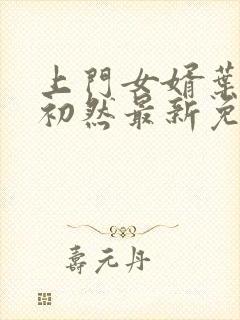 上門女婿葉
初然最新免
壽元丹